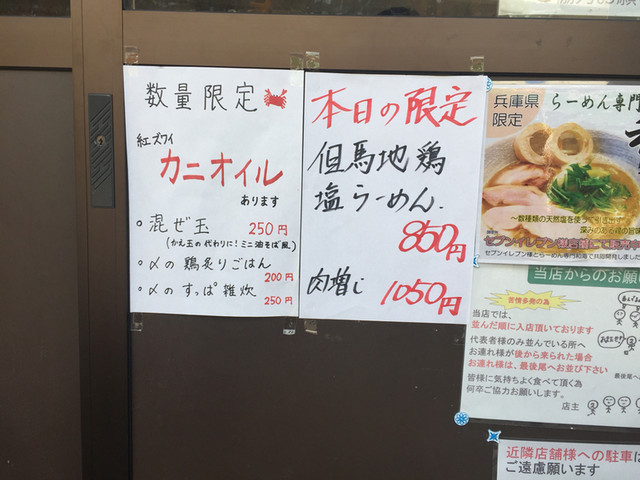 数量限定
紅ズワイ
カニオイル
あります
混ぜ玉 250円
(かえ玉の代わりに!ミニ油そば風)
〆の鶏炙りごはん
200円
〆のすっぱ雑炊
250円
本日の限定
但馬地鶏
塩らーめん.
850円
肉増し 1050円
兵庫県
限定
らーめん専門
〜数種類の天然塩を使って引き出す
深みのある
セブンイレブン
セブンイレブン様とらーめん専門和海で共同開発しました
当店からのお願い
苦情多発の為
当店では、
並んだ順に入店頂いております
代表者様のみ並んでいる所へ
お連れ様が後から来られた場合
お連れ様は、最後尾へお並び下さい
皆様に気持ちよく食べて頂く為
何卒ご協力お願いします。
店主
最後尾へ
近隣店舗様への駐車は
ご遠慮願います